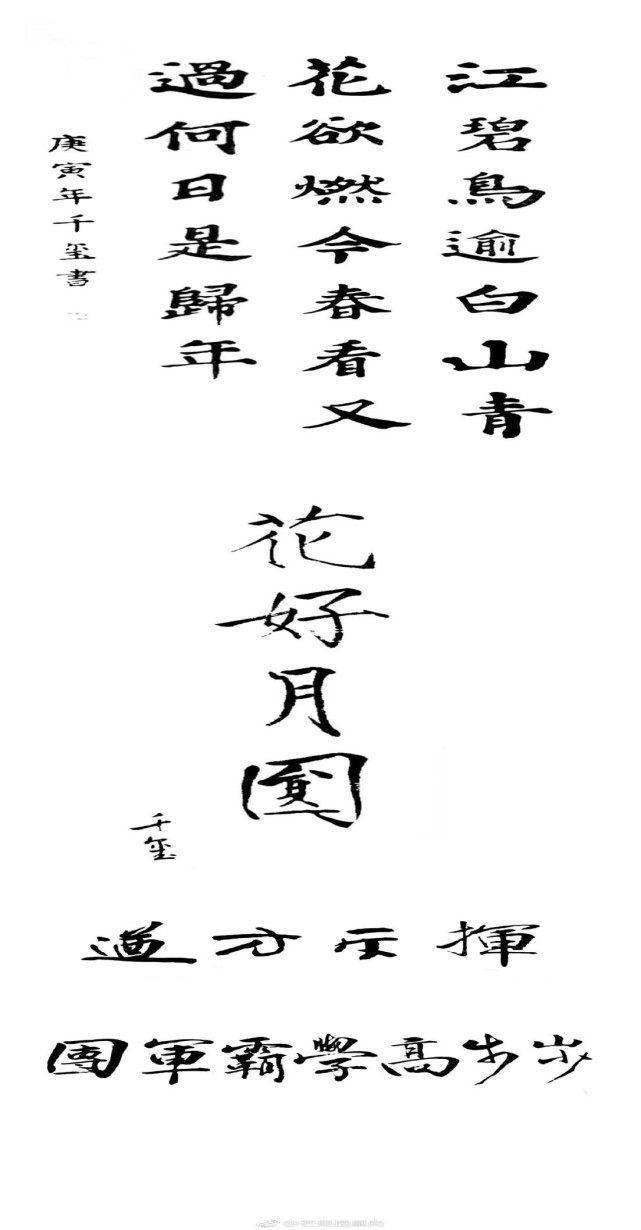 江碧鳥逾白山青
花欲燃今春看又
過何日是歸年
庚寅年千璽書
花好月圓
千璽
揮斥方遒
步步高學霸軍團